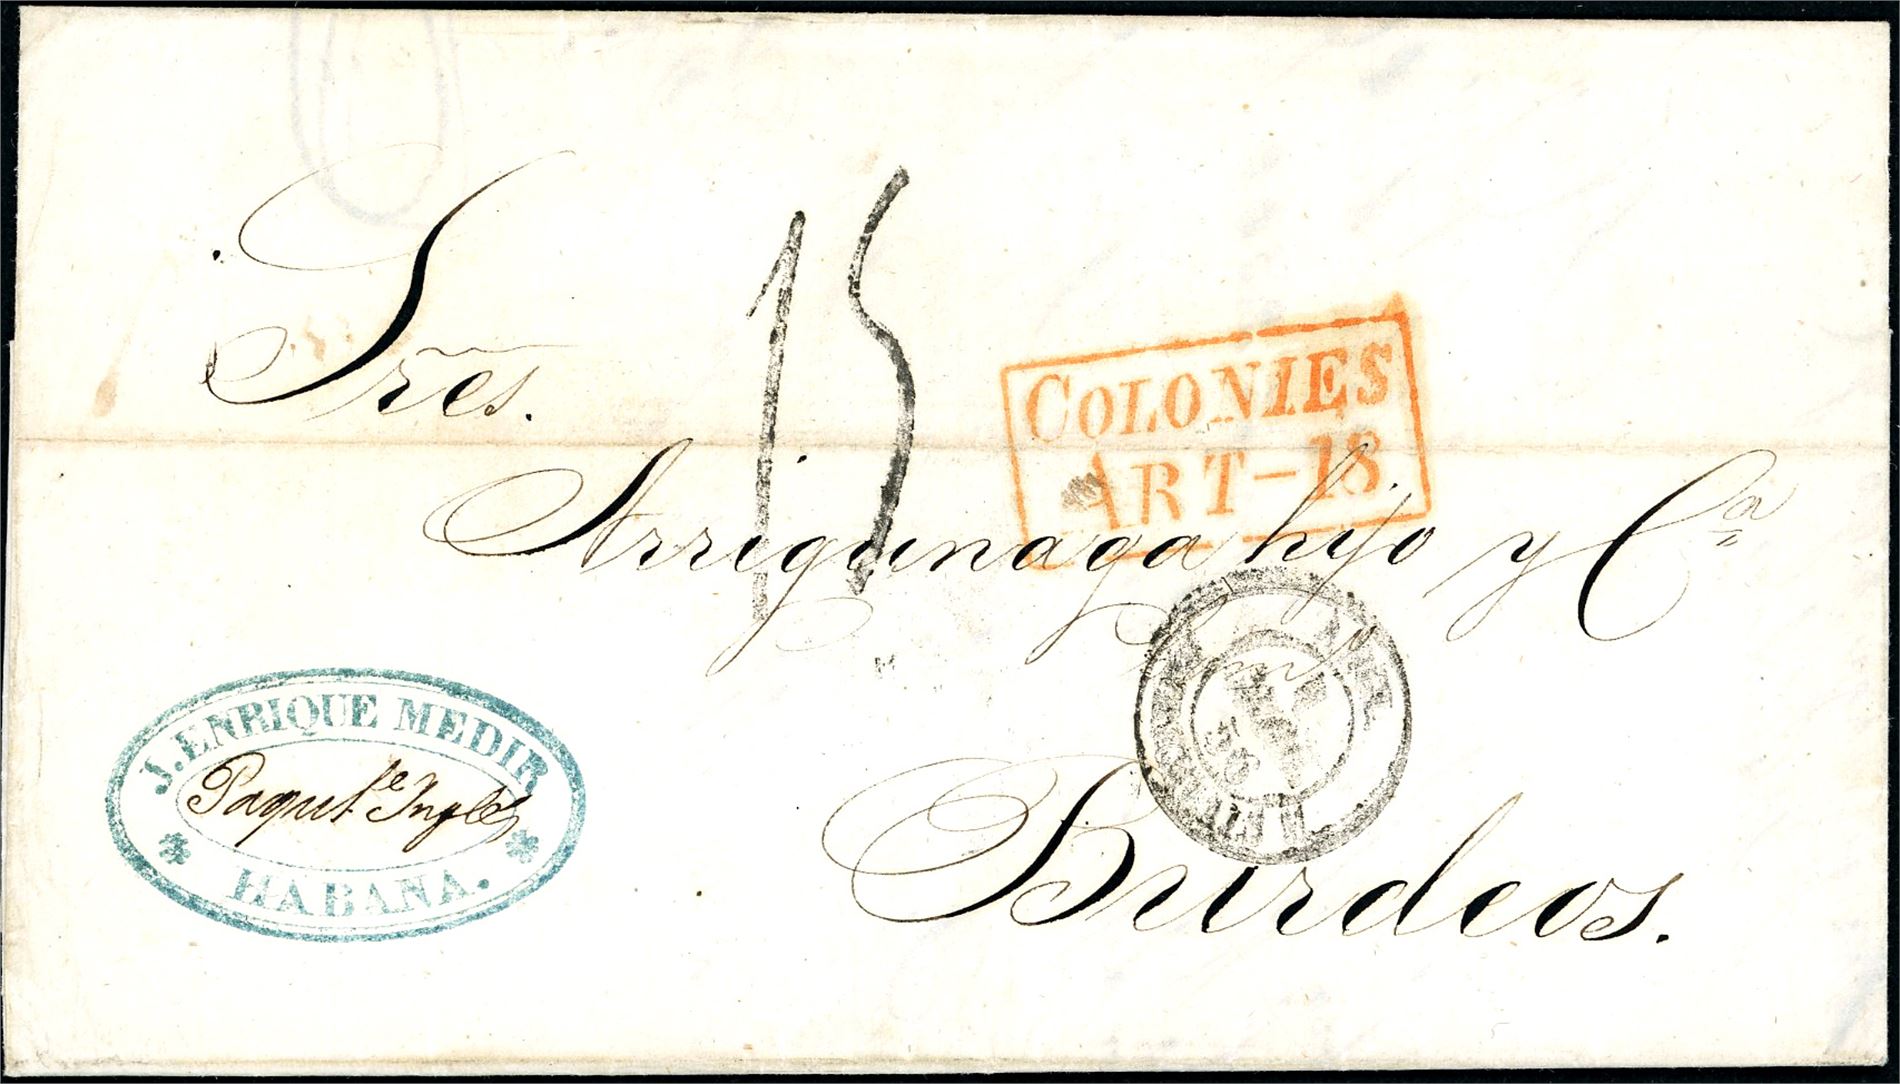 Sres.
15
COLONIES
ART-18
Arrigunaga hijo y Cª
J. ENRIQUE MEDIR
Paquete Ingles
HABANA.
Burdeos.